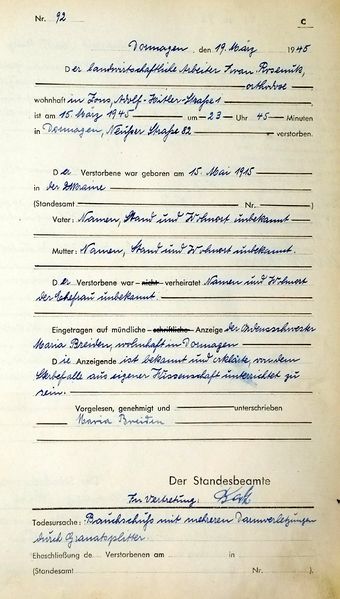 Nr. 92
C
Dormagen, den 19. März 1945
Der landwirtschaftliche Arbeiter Iwan
orthodox
wohnhaft in Zons, Adolf-Hitler-Straße 1
ist am 15. März 1945 um 23 Uhr 45 Minuten
in Dormagen, Neußer Straße 82 verstorben.
Der Verstorbene war geboren am 15. Mai 1915
in der Ukraine
(Standesamt Nr. )
Vater: Namen, Stand und Wohnort unbekannt
Mutter: Namen, Stand und Wohnort unbekannt.
Der Verstorbene war nicht verheiratet Namen und Wohnort
der Ehefrau unbekannt.
Eingetragen auf mündliche schriftliche Anzeige der Ordensschwester
Maria Breiden, wohnhaft in Dormagen
Die Anzeigende ist bekannt und erklärte, von dem
Sterbefalle aus eigener Wissenschaft unterrichtet zu
sein.
Vorgelesen, genehmigt und unterschrieben
Maria Breiden
Der Standesbeamte
In Vertretung:
Todesursache: Bauchschuß mit mehreren Darmverletzungen
durch Granatsplitter.
Eheschließung de Verstorbenen am in
(Standesamt Nr. )